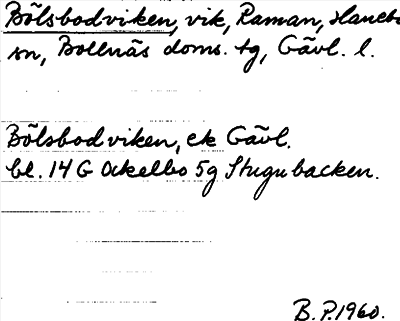 Bölsbodviken, vik, Raman, Hanebo
sn, Bollnäs doms. tg, Gävl. l.
Bölsbodviken, ek Gävl.
bl. 14 G Ockelbo 5g Stugubacken.
B.P. 1960.